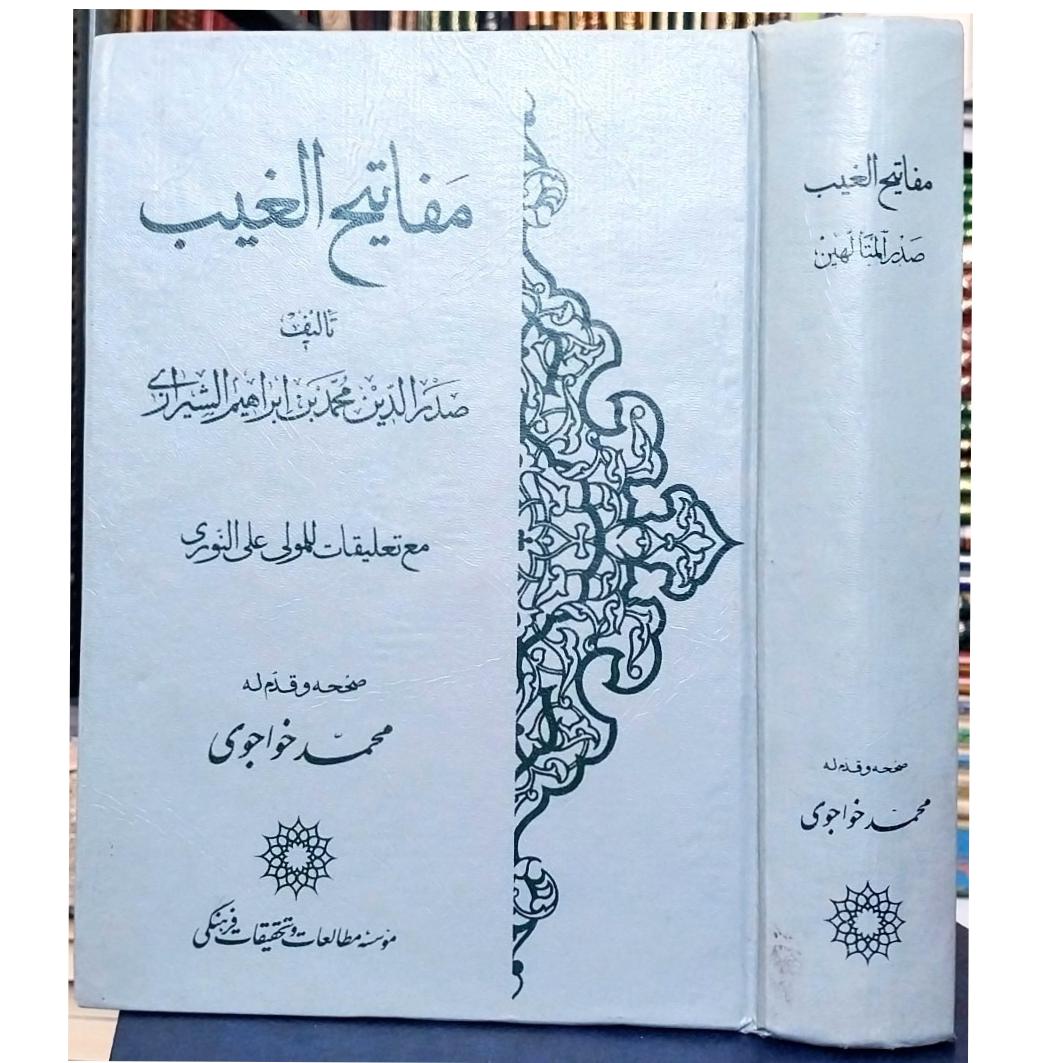 مفاتيح الغيب
تأليف
صدر الدين محمد بن ابراهيم الشيرازي
مع تعليقات للمولى على النوري
صححه وقدم له
محمد خواجوى
مؤسسه مطالعات و تحقيقات فرهنگى
مفاتيح الغيب
صدر المتألهين
صححه وقدم له
محمد خواجوى